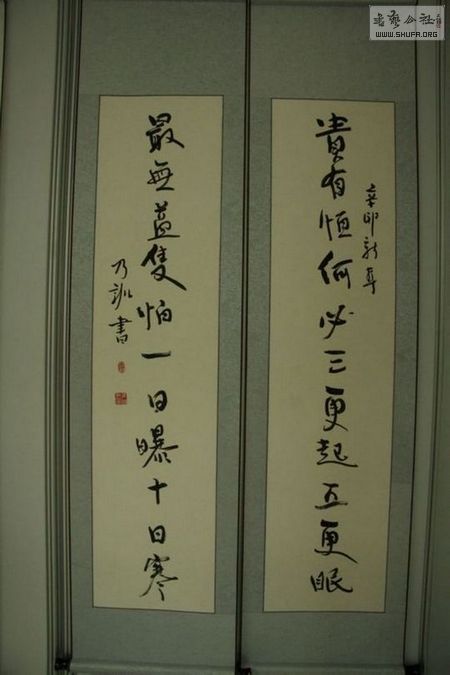 書藝公社
WWW.SHUFA.ORG
貴有恒何必三更起五更眠
辛卯新
最無益隻怕一日曝十日寒
乃訓書